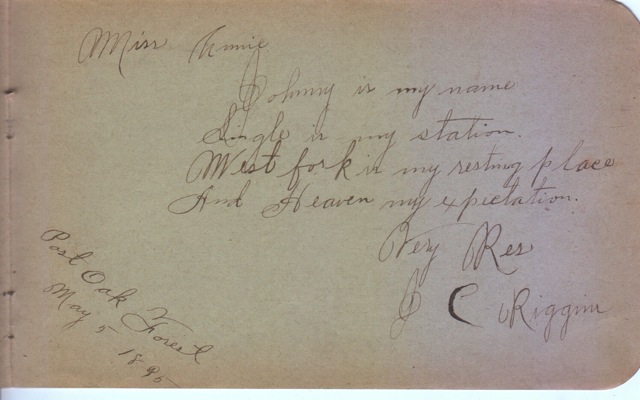 Miss Annie
Johnny is my name
Single is my station.
West fork is my resting place
And Heaven my expectation.
Very Res
J C Riggins
Post Oak Forest
May 5 1895